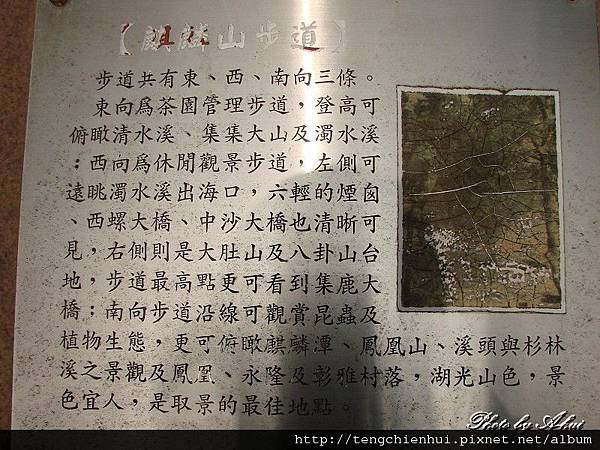 【麒麟山步道】
步道共有東、西、南向三條。
東向為茶園管理步道，登高可
俯瞰清水溪、集集大山及濁水溪
；西向為休閒觀景步道，左側可
遠眺濁水溪出海口，六輕的煙囪
、西螺大橋、中沙大橋也清晰可
見，右側則是大肚山及八卦山台
地，步道最高點更可看到集鹿大
橋；南向步道沿線可觀賞昆蟲及
植物生態，更可俯瞰麒麟潭、鳳凰山、溪頭與杉林
溪之景觀及鳳凰、永隆及彰雅村落，湖光山色，景
色宜人，是取景的最佳地點。
Photo by Ahui
http://tengchienhui.pixnet.net/album